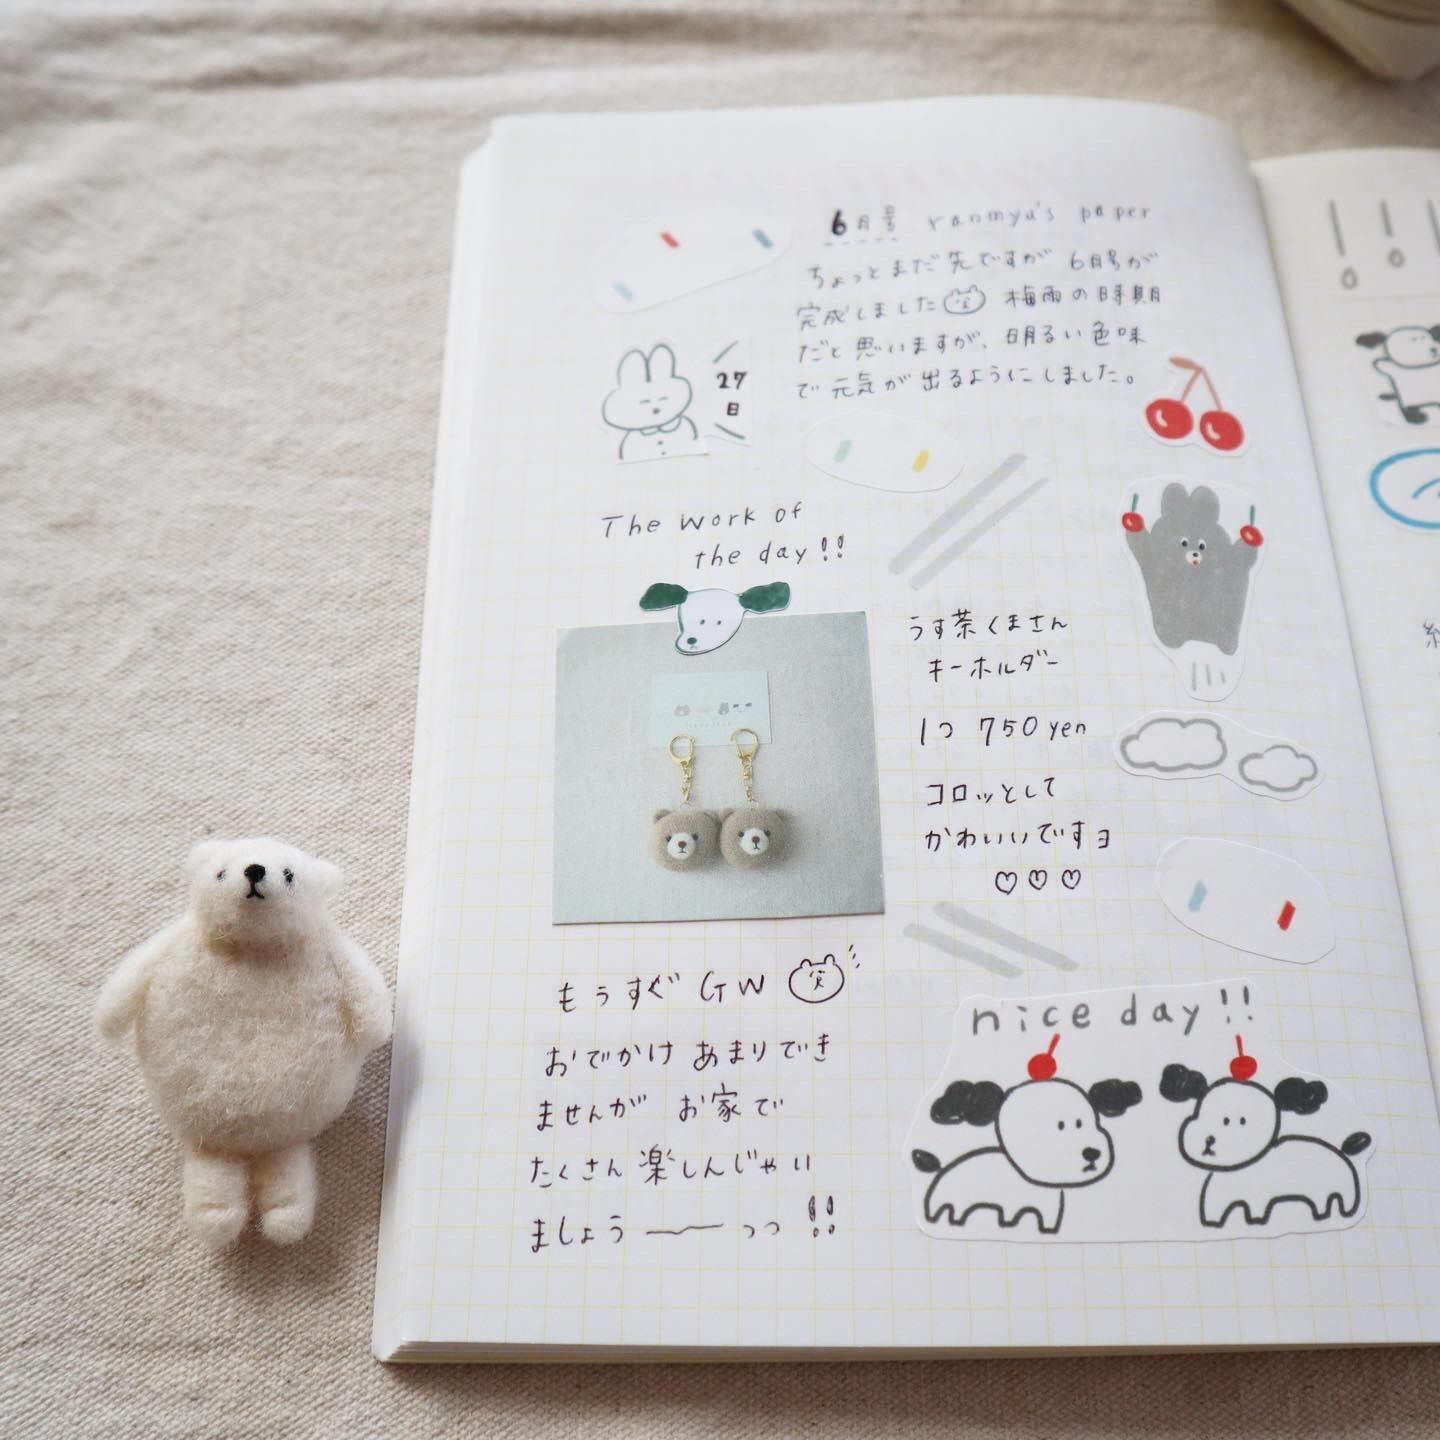 6月号 ranmyu's paper
ちょっとまだ先ですが 6月号が
完成しました 梅雨の時期
だと思いますが、明るい色味
で元気が出るようにしました。
27
日
The work of
the day!!
うす茶くまさん
キーホルダー
1つ 750yen
コロッとして
かわいいですヨ
♡♡♡
もうすぐ GW
おでかけ あまりでき
ませんが お家で
たくさん 楽しんじゃい
ましょう〜〜っっ!!
nice day!!